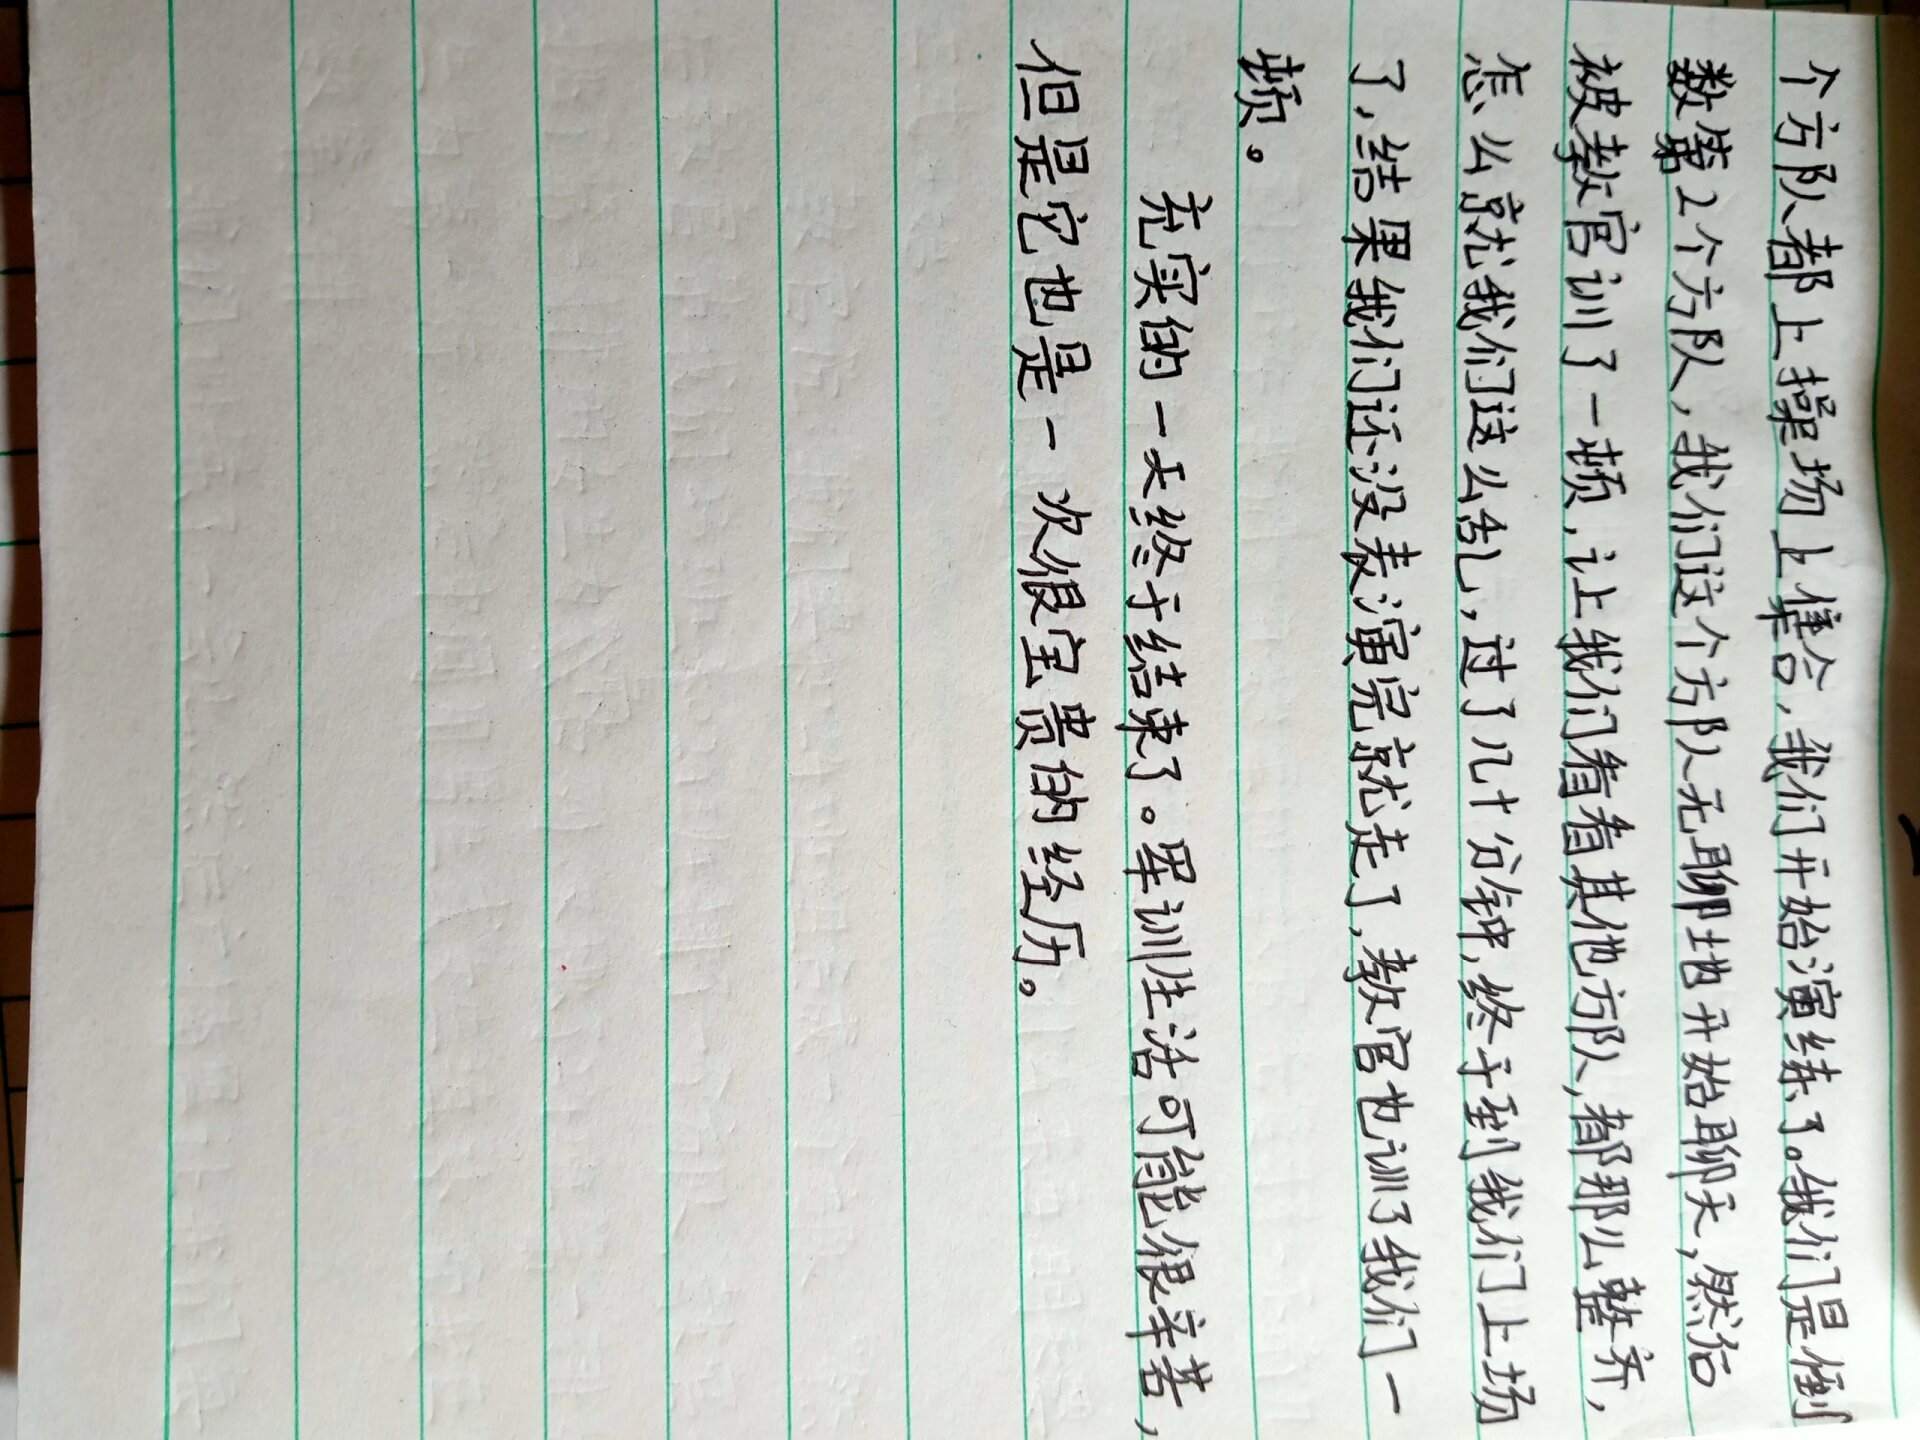 个方队都上操场上集合，我们开始演练了。我们是倒
数第2个方队，我们这个方队无聊地开始聊天，然后
被教官训了一顿，让我们看看其他方队，都那么整齐，
怎么就我们这么乱，过了几十分钟，终于到我们上场
了，结果我们还没表演完就走了，教官也训了我们一
顿。
充实的一天终于结束了。军训生活可能很辛苦，
但是它也是一次很宝贵的经历。